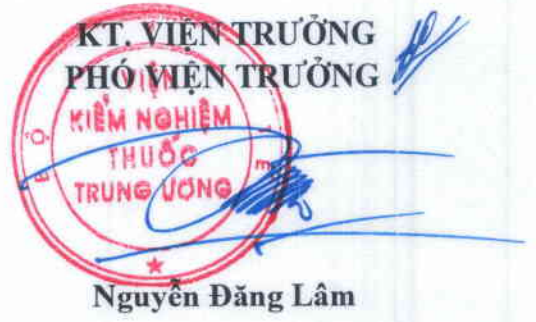 KT. VIỆN TRƯỞNG
PHÓ VIỆN TRƯỞNG
VIỆN
KIỂM NGHIỆM
THUỐC
TRUNG ƯƠNG
BỘ
Nguyễn Đăng Lâm